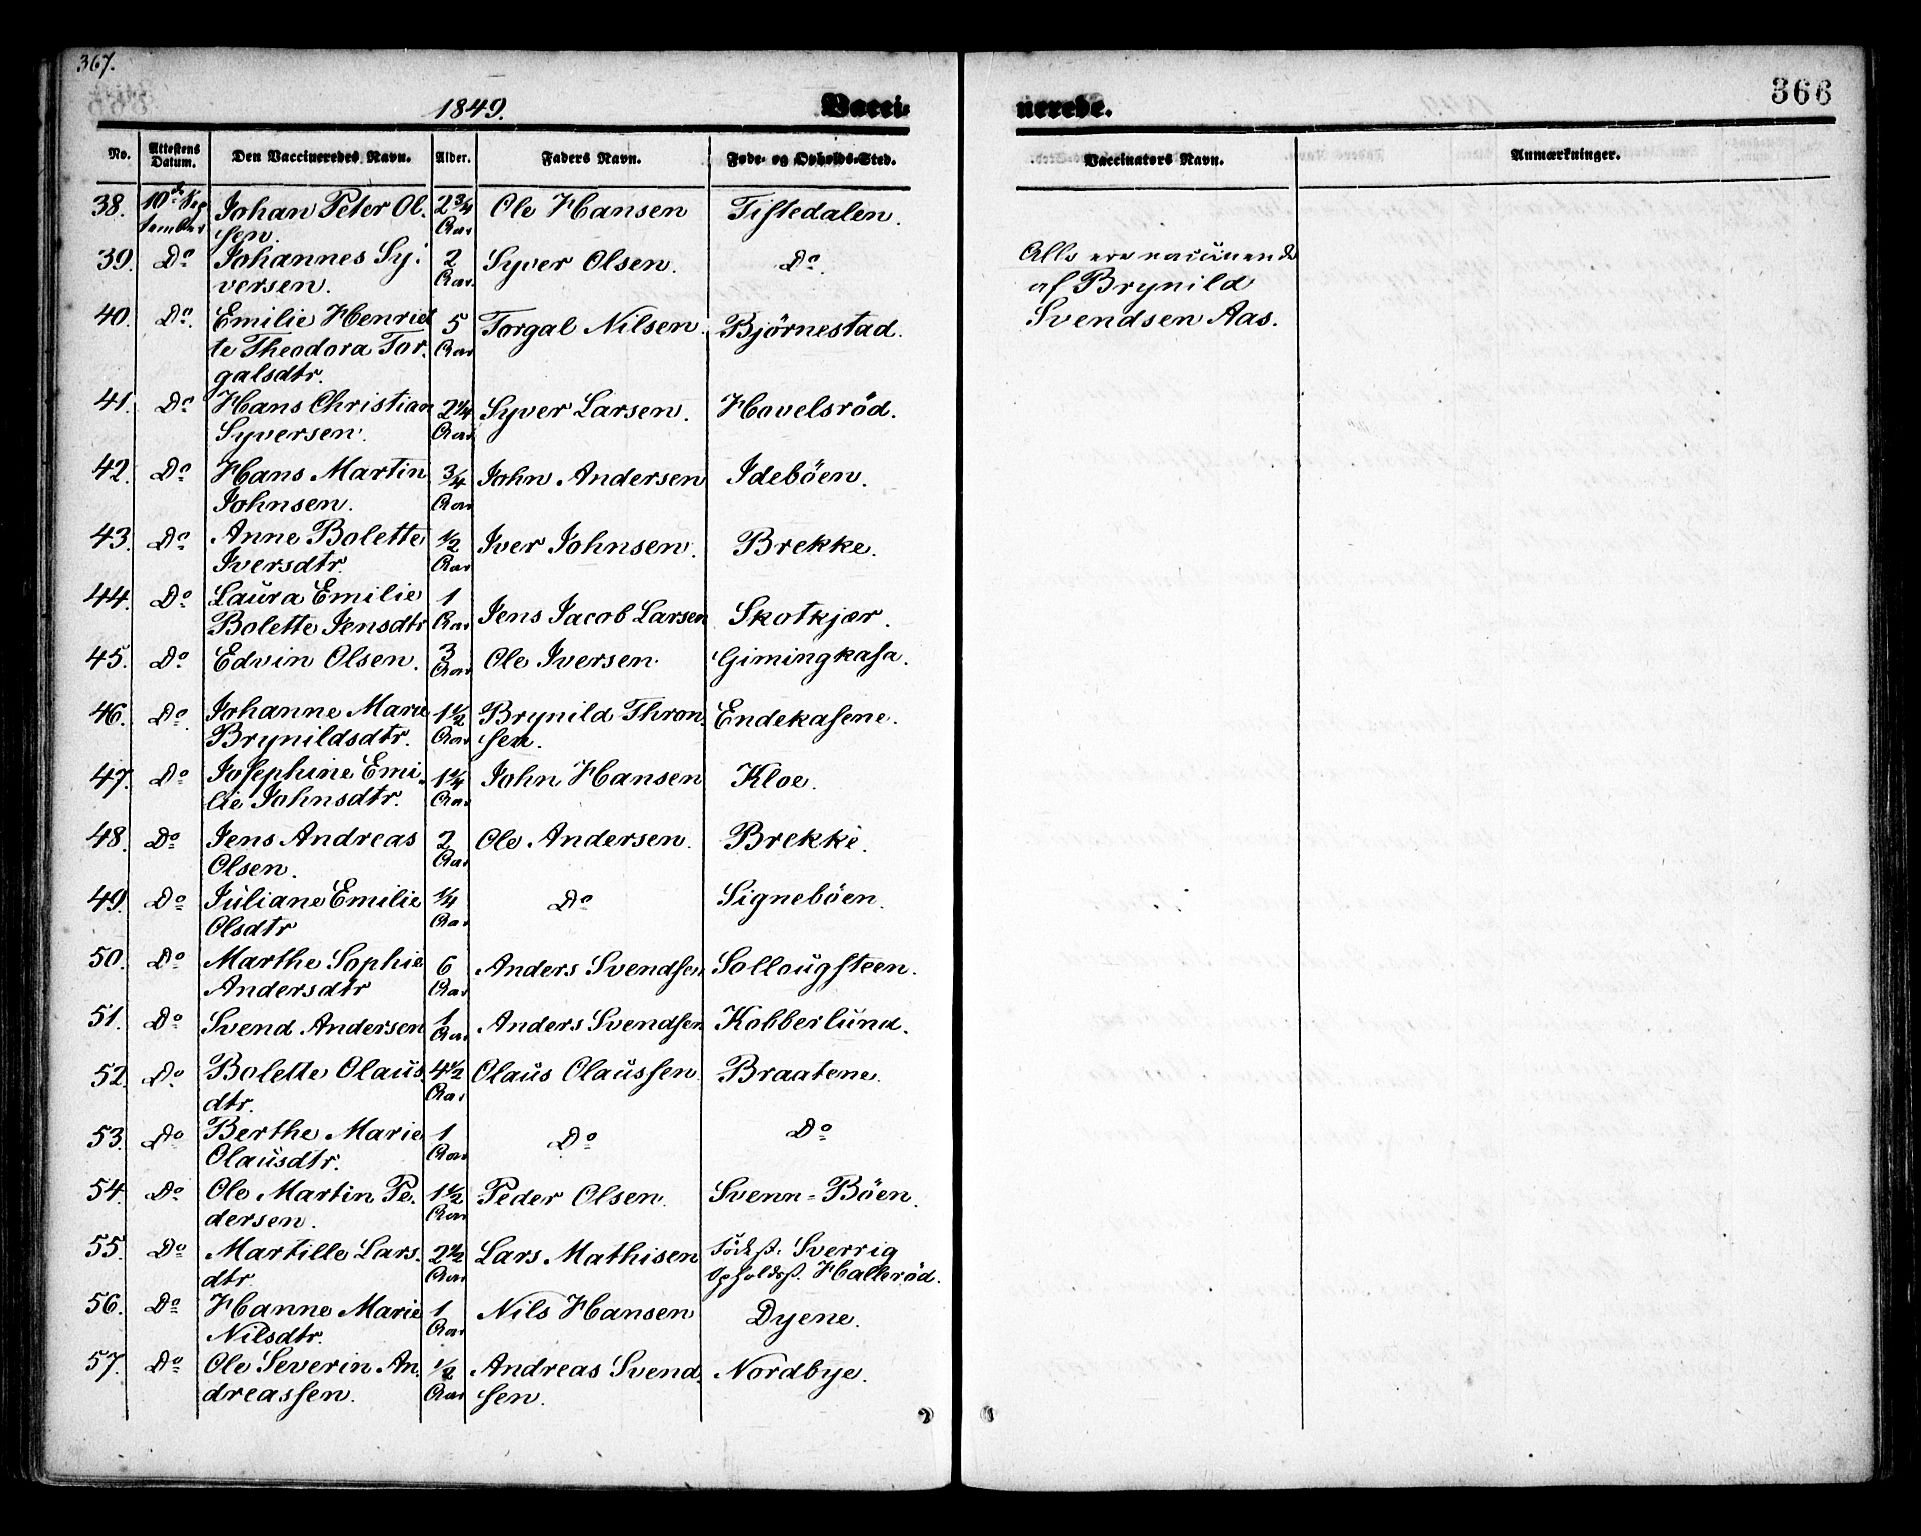 367.
366
1849.
Vacci-
nerede.
No. Attestens Datum. Den Vaccineredes Navn. Alder. Faders Navn. Føde- og Opholds-Sted. Vaccinators Navn. Anmærkninger.
38. 10de Sep- Johan Peter Ol- 2 3/4 Ole Hansen Tistedalen.
tember sen. Aar
39. Do Johannes Sy- 2 Syver Olsen. Do. Alle ere vaccinerede
versen. Aar af Brynild
40. Do. Emilie Henriet- 5 Torgal Nilsen. Bjørnestad. Svendsen Aas.
te Theodora Tor- Aar
galsdtr.
41. Do Hans Christian 2 1/4 Syver Larsen. Hovelsrød.
Syversen. Aar
42. Do Hans Martin 3/4 John Andersen Idebøen.
Johnsen. Aar
43. Do Anne Bolette 1/2 Iver Johnsen. Brekke.
Iversdtr. Aar
44. Do Laura Emilie 1 Jens Jacob Larsen Skotkjær.
Bolette Jensdtr Aar
45. Do Edvin Olsen. 3 Ole Iversen. Gimingkasa.
Aar
46. Do. Johanne Marie 1 1/2 Brynild Thron- Endekasene.
Brynildsdtr. Aar sen.
47. Do Josephine Emi- 1 1/4 John Hansen Kloe.
lie Johnsdtr. Aar
48. Do Jens Andreas 2 Ole Andersen. Brekke.
Olsen. Aar
49. Do Juliane Emilie 1/4 Do Signebøen.
Olsdtr Aar
50. Do Marthe Sophie 6 Anders Svendsen Sollougsteen.
Andersdtr Aar
51. Do Svend Andersen 1 Anders Svendsen Kobberlund.
Aar
52. Do Bolette Olaus- 4 1/2 Olaus Olaussen. Braatene.
dtr. Aar
53. Do Berthe Marie 1 Do Do
Olausdtr. Aar
54. Do Ole Martin Pe- 1 1/2 Peder Olsen. Svenn-Bøen.
dersen. Aar
55. Do Martille Lars- 2 1/2 Lars Mathisen Fødest. Sverrig
dtr. Aar Opholdsst. Hallerød.
56. Do Hanne Marie 1 Nils Hansen Dyene.
Nilsdtr. Aar
57. Do Ole Severin An- 1/2 Andreas Svend- Nordbye.
dreassen. Aar sen.